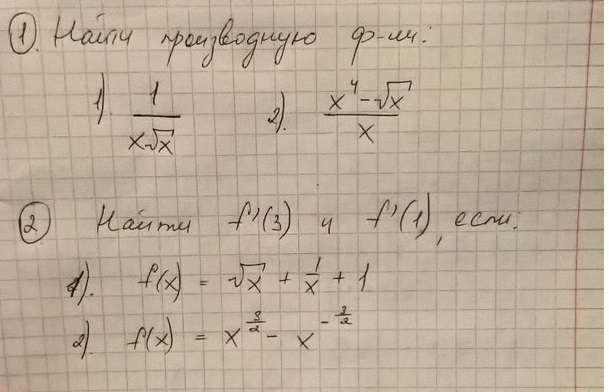 ① Найти производную ф-ии:
1). 1/(x√x) 2). (x⁴-√x)/x
② Найти f'(3) и f'(1), если:
1). f(x) = √x + 1/x + 1
2). f(x) = x^(3/2) - x^(-3/2)